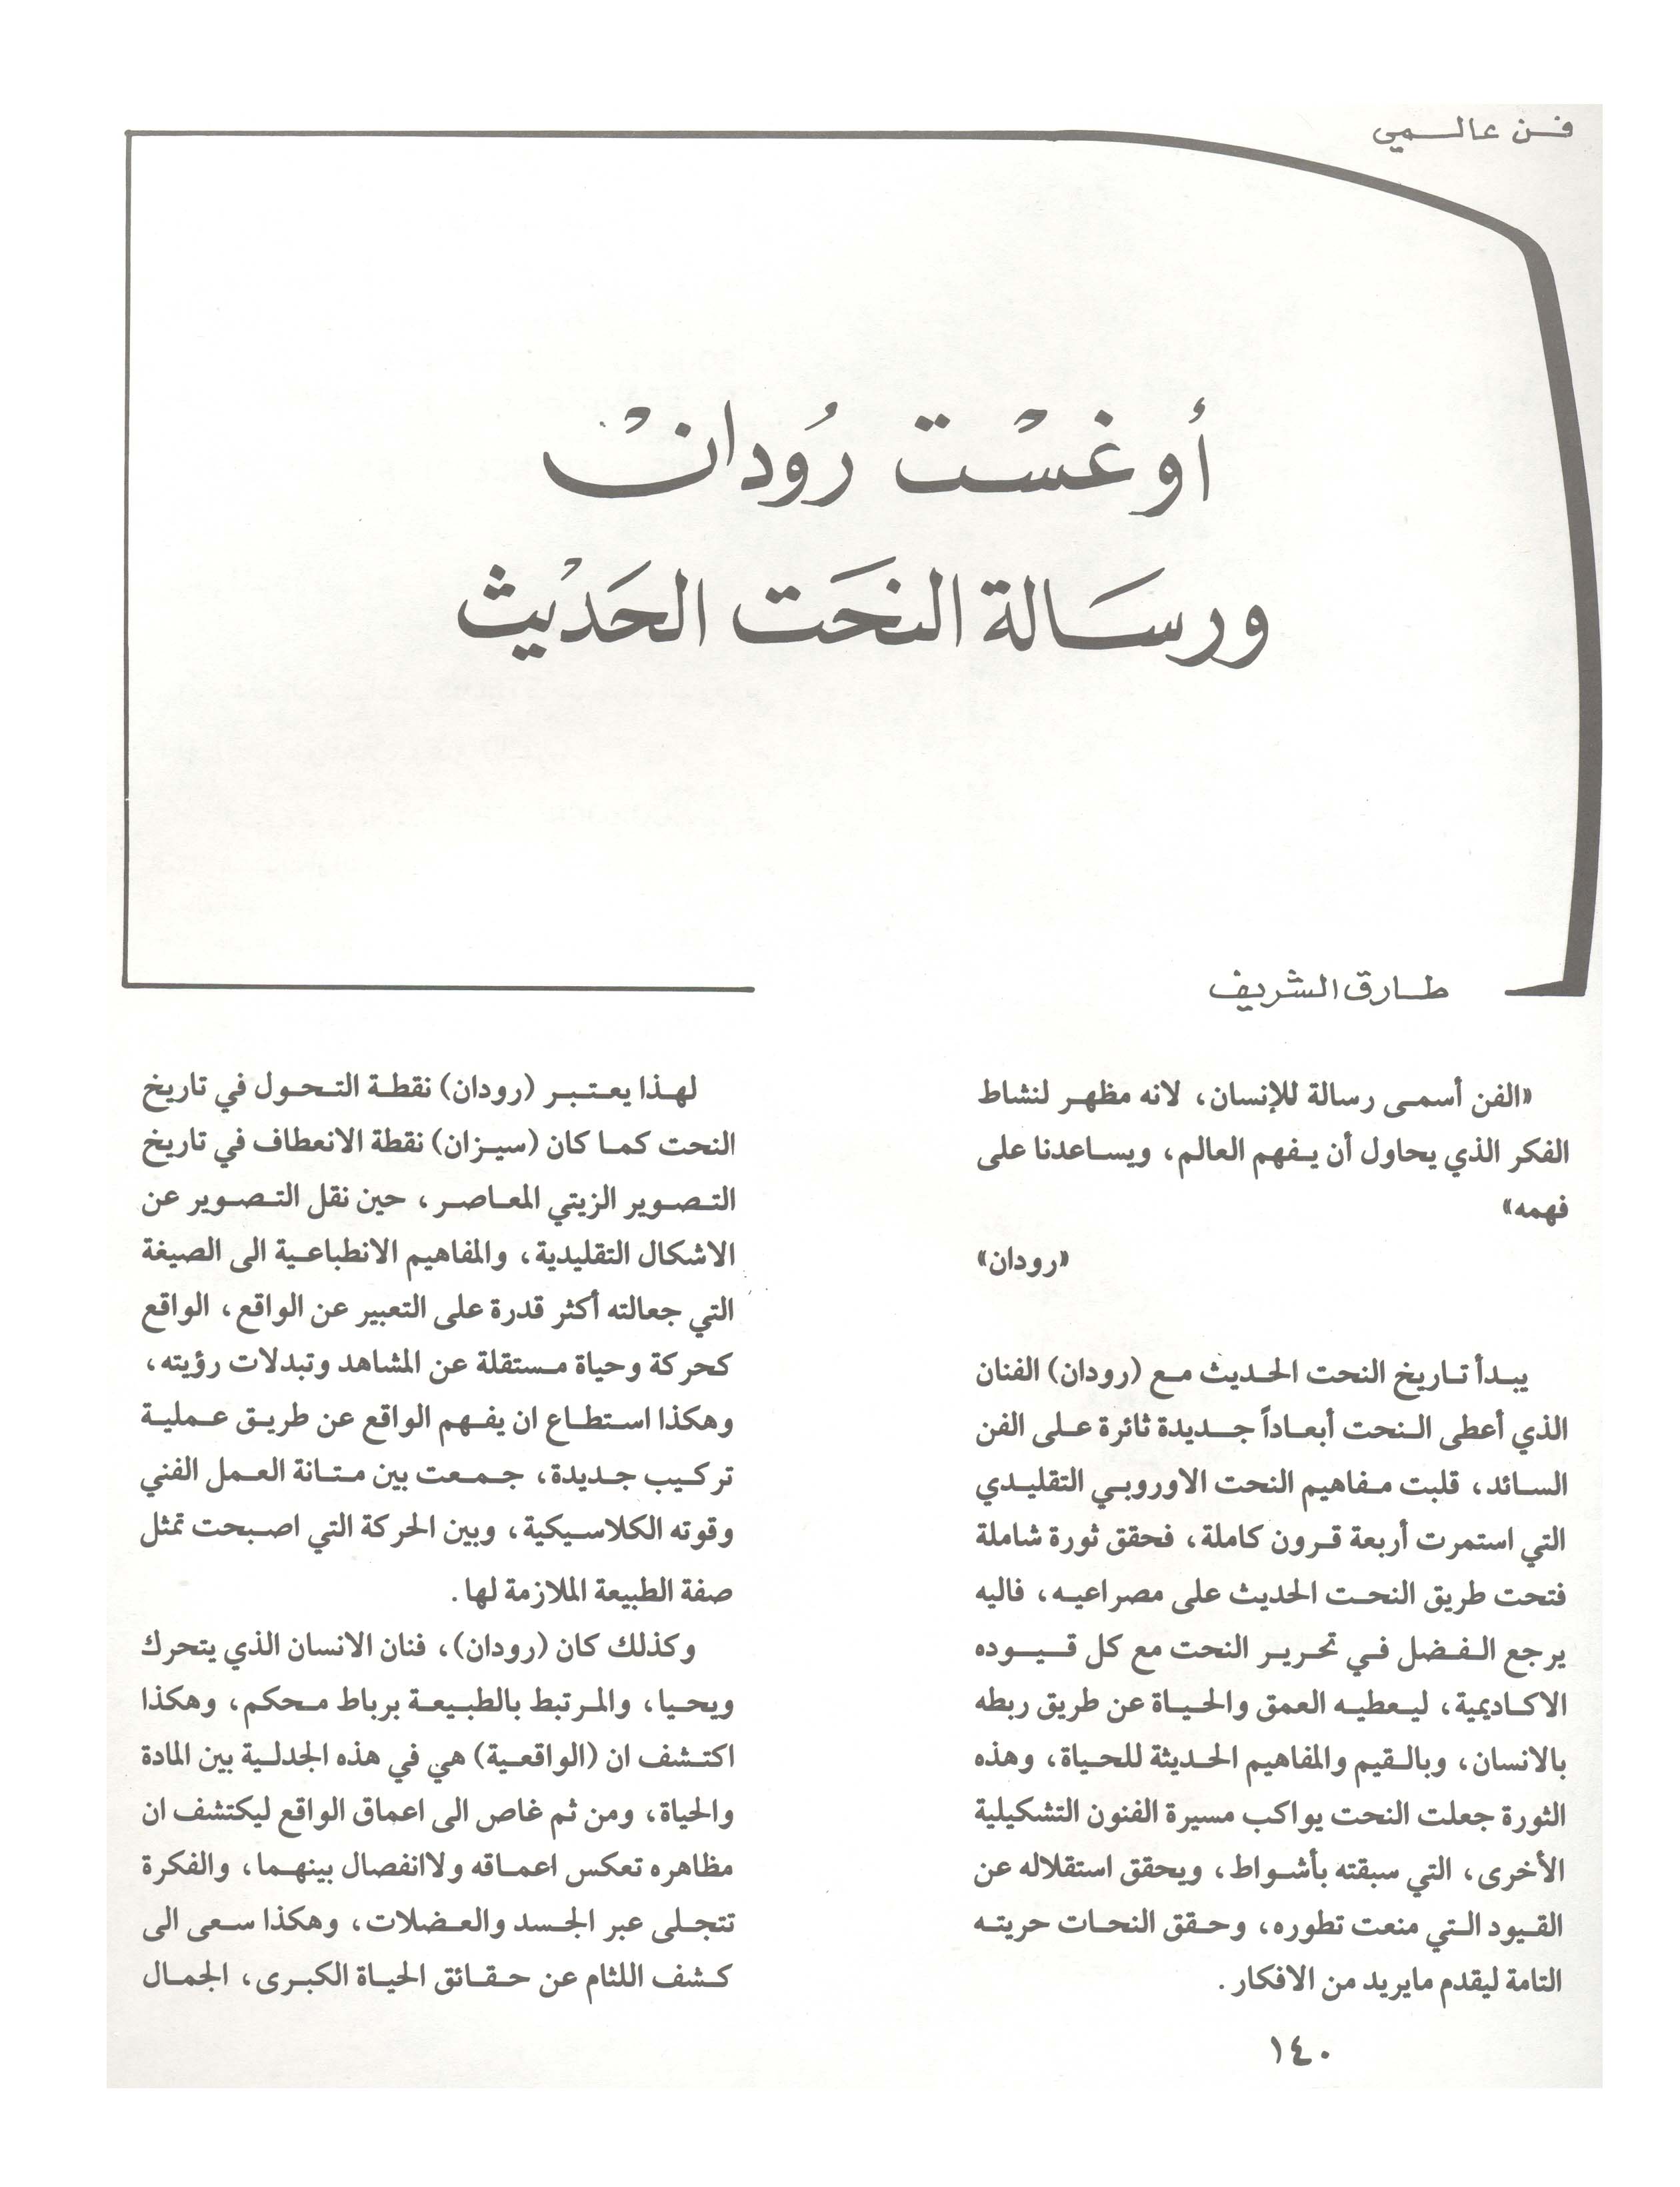 فن عالمي
أوغسْت رُودانْ
ورسَالة النحَت الحَديْث
طارق الشريف
«الفن أسمى رسالة للإنسان، لانه مظهر لنشاط
الفكر الذي يحاول أن يفهم العالم، ويساعدنا على
فهمه»
«رودان»
يبدأ تاريخ النحت الحديث مع (رودان) الفنان
الذي أعطى النحت أبعاداً جديدة ثائرة على الفن
السائد، قلبت مفاهيم النحت الاوروبي التقليدي
التي استمرت أربعة قرون كاملة، فحقق ثورة شاملة
فتحت طريق النحت الحديث على مصراعيه، فاليه
يرجع الفضل في تحرير النحت مع كل قيوده
الاكاديمية، ليعطيه العمق والحياة عن طريق ربطه
بالانسان، وبالقيم والمفاهيم الحديثة للحياة، وهذه
الثورة جعلت النحت يواكب مسيرة الفنون التشكيلية
الأخرى، التي سبقته بأشواط، ويحقق استقلاله عن
القيود التي منعت تطوره، وحقق النحات حريته
التامة ليقدم مايريد من الافكار.
لهذا يعتبر (رودان) نقطة التحول في تاريخ
النحت كما كان (سيزان) نقطة الانعطاف في تاريخ
التصوير الزيتي المعاصر، حين نقل التصوير عن
الاشكال التقليدية، والمفاهيم الانطباعية الى الصيغة
التي جعالته أكثر قدرة على التعبير عن الواقع، الواقع
كحركة وحياة مستقلة عن المشاهد وتبدلات رؤيته،
وهكذا استطاع ان يفهم الواقع عن طريق عملية
تركيب جديدة، جمعت بين متانة العمل الفني
وقوته الكلاسيكية، وبين الحركة التي اصبحت تمثل
صفة الطبيعة الملازمة لها.
وكذلك كان (رودان)، فنان الانسان الذي يتحرك
ويحيا، والمرتبط بالطبيعة برباط محكم، وهكذا
اكتشف ان (الواقعية) هي في هذه الجدلية بين المادة
والحياة، ومن ثم غاص الى اعماق الواقع ليكتشف ان
مظاهره تعكس اعماقه ولاانفصال بينهما، والفكرة
تتجلى عبر الجسد والعضلات، وهكذا سعى الى
كشف اللثام عن حقائق الحياة الكبرى، الجمال
١٤٠